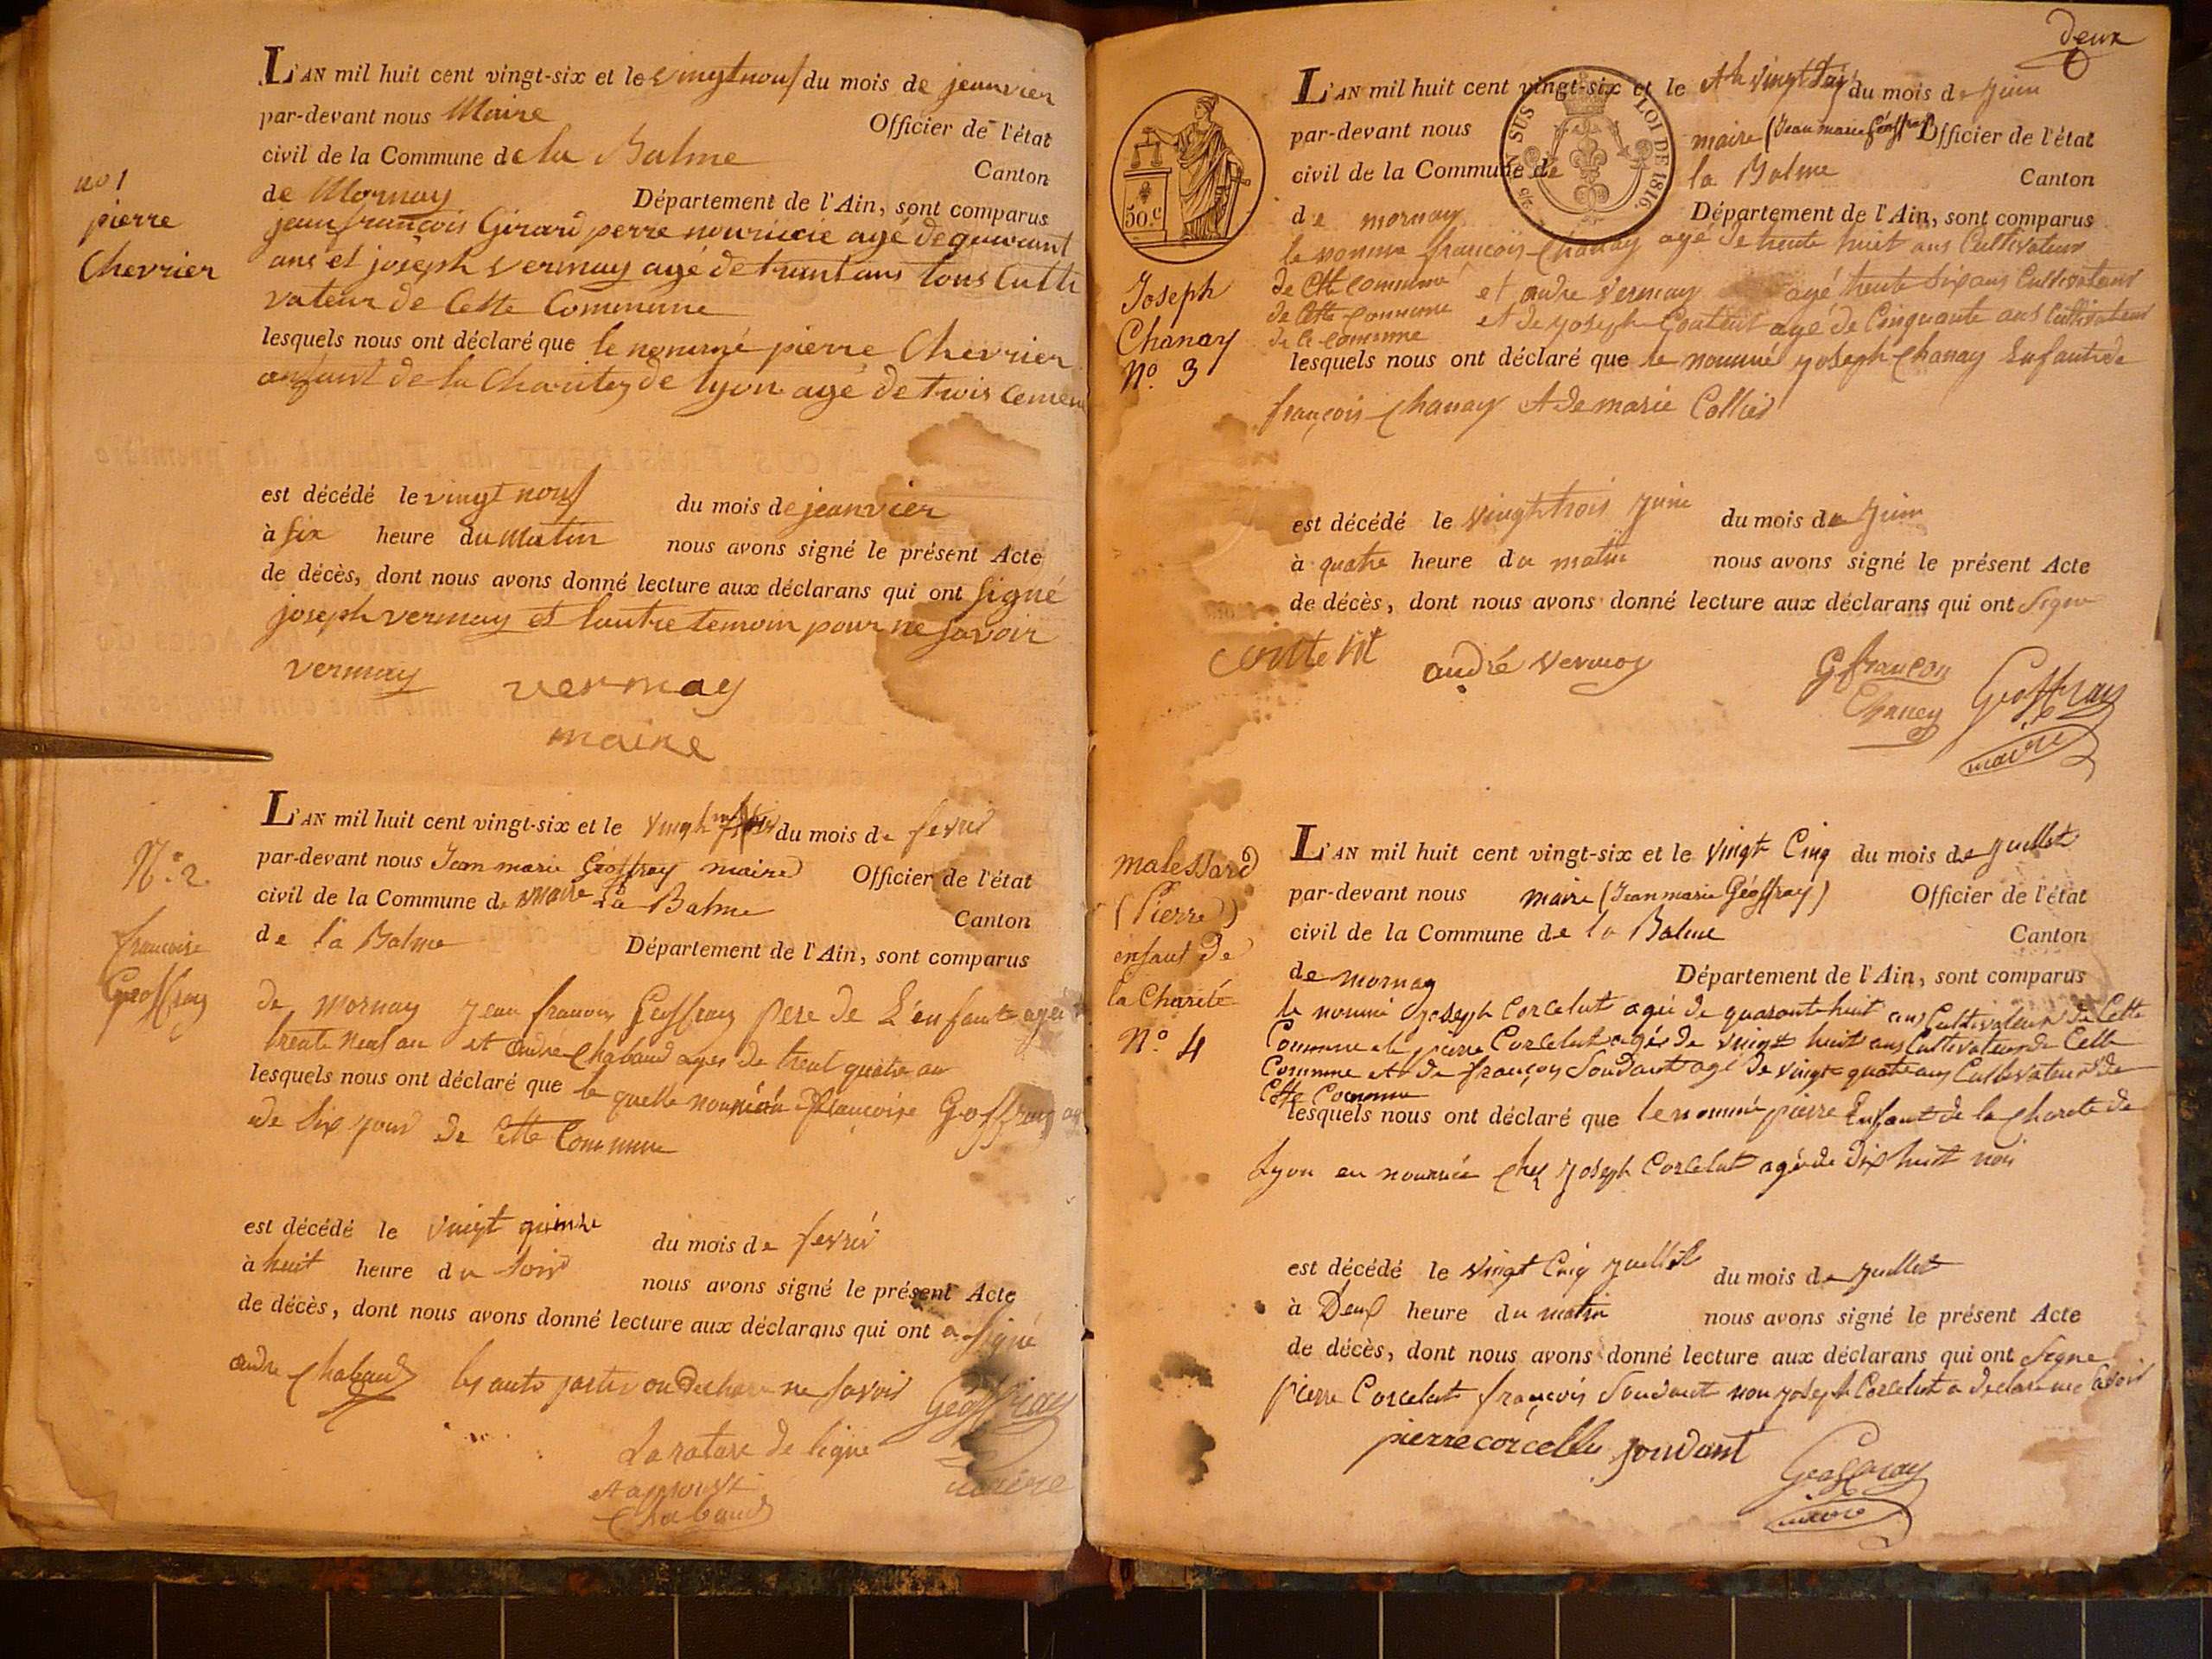 L'AN mil huit cent vingt-six et le vingt nouf du mois de jeanvier
par-devant nous Maire Officier de l'état
civil de la Commune de la Balme Canton
de Mornay Département de l'Ain, sont comparus
no 1
pierre
Chevrier
jean françois Girard perre nouricie agé de quarant
ans et joseph vermay agé de trant ans tous Culti
vateur de Cette Commune
lesquels nous ont déclaré que le nommé pierre Chevrier
anfant de la Charitez de lyon agé de trois
est décédé le vingt nouf du mois de jeanvier
à six heure du Matin nous avons signé le présent Acte
de décès, dont nous avons donné lecture aux déclarans qui ont signé
joseph vermay et lautre temoin pour ne savoir
vermay vermay
maire
L'AN mil huit cent vingt-six et le vingt du mois de fevrié
par-devant nous Jean marie Géoffray maire Officier de l'état
civil de la Commune de maire La Balme Canton
de la Balme Département de l'Ain, sont comparus
N.° 2.
francoise
Geoffray
de Mornay jean francois Geoffray pere de L'enfant agé
trente neuf an et andre Chabaud ages de trent quatre an
lesquels nous ont déclaré que la quelle françoise Geoffray
de six jour de Cette Commune
est décédé le vingt du mois de fevrié
à huit heure du soir nous avons signé le présent Acte
de décès, dont nous avons donné lecture aux déclarans qui ont a signé
andre Chabaud les autre ne savoir Géoffray
La rature de ligne maire
et approuve
Chabaud
deux
L'AN mil huit cent vingt-six et le vingt du mois de juin
par-devant nous maire (Jean marie Géoffray) Officier de l'état
civil de la Commune de la Balme Canton
de mornay Département de l'Ain, sont comparus
SUS LOI DE 1816.
50.c
le nomme françois Chanay agé de trente huit ans Cultivateur
de Cette commune et andre Vermay agé trente six ans Cultivateur
de Cette commune et de joseph agé de Cinquante ans Cultivateur
de commune
Joseph
Chanay
N.° 3
lesquels nous ont déclaré que le nommé joseph Chanay Enfant de
françois Chanay et de marie Collier
est décédé le vingt trois juin du mois de juin
à quatre heure du matin nous avons signé le présent Acte
de décès, dont nous avons donné lecture aux déclarans qui ont signe
andré vermay françon
Chaney Geoffray
maire
L'AN mil huit cent vingt-six et le vingt Cinq du mois de juillet
par-devant nous maire (Jean marie Géoffray) Officier de l'état
civil de la Commune de la Balme Canton
de mornay Département de l'Ain, sont comparus
malessard
(Pierre)
enfant de
la Charité
N.° 4
le nommé joseph Corcelut agée de quarante huit ans Cultivateur de Cette
Commune et pierre Corcelut agée de vingt huit ans Cultivateur de Cette
Commune et de françois Soudant agé de vingt quatre ans Cultivateur de
Cette Commune
lesquels nous ont déclaré que le nommé pierre Enfant de la Charete de
Lyon en nourrice Chez joseph Corcelut agé de dix huit mois
est décédé le vingt Cinq juillet du mois de juillet
à Deux heure du matin nous avons signé le présent Acte
de décès, dont nous avons donné lecture aux déclarans qui ont signe
pierre Corcelut françois Soudant non joseph Corcelut a déclaré
pierre corcellu soudant
Geoffray
maire